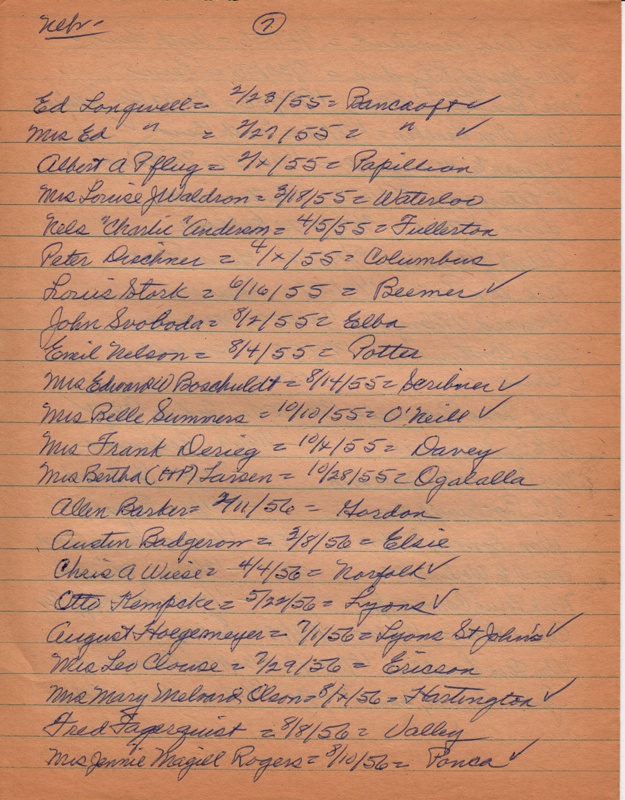 Nebr- 7
Ed Longwell = 2/23/55 = Bancroft ✓
Mrs Ed " = 2/27/55 = " ✓
Albert A Pflug = 2/x/55 = Papillion
Mrs Louise J Waldron = 3/18/55 = Waterloo
Nels "Charlie" Anderson = 4/5/55 = Fullerton
Peter Dischner = 4/x/55 = Columbus
Louis Stork = 6/16/55 = Beemer ✓
John Svoboda = 8/2/55 = Elba
Emil Nelson = 8/4/55 = Potter
Mrs Edward W Boschuldt = 8/14/55 = Scribner ✓
Mrs Belle Summers = 10/10/55 = O'Neill ✓
Mrs Frank Derieg = 10/x/55 = Davey
Mrs Bertha (HP) Larsen = 10/28/55 = Ogalalla
Allen Barker = 2/11/56 = Gordon
Austin Badgerow = 3/8/56 = Elsie
Chris A Wiese = 4/4/56 = Norfolk ✓
Otto Kempcke = 5/22/56 = Lyons ✓
August Hoegemeyer = 7/1/56 = Lyons St John's ✓
Mrs Leo Clouse = 7/29/56 = Ericson
Mrs Mary Olson = 8/x/56 = Hartington ✓
Fred Fagerquist = 8/8/56 = Valley
Mrs Jennie Magill Rogers = 8/10/56 = Ponca ✓